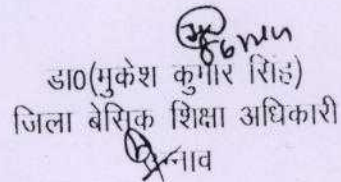 डा0(मुकेश कुमार सिंह)
जिला बेसिक शिक्षा अधिकारी
उन्नाव